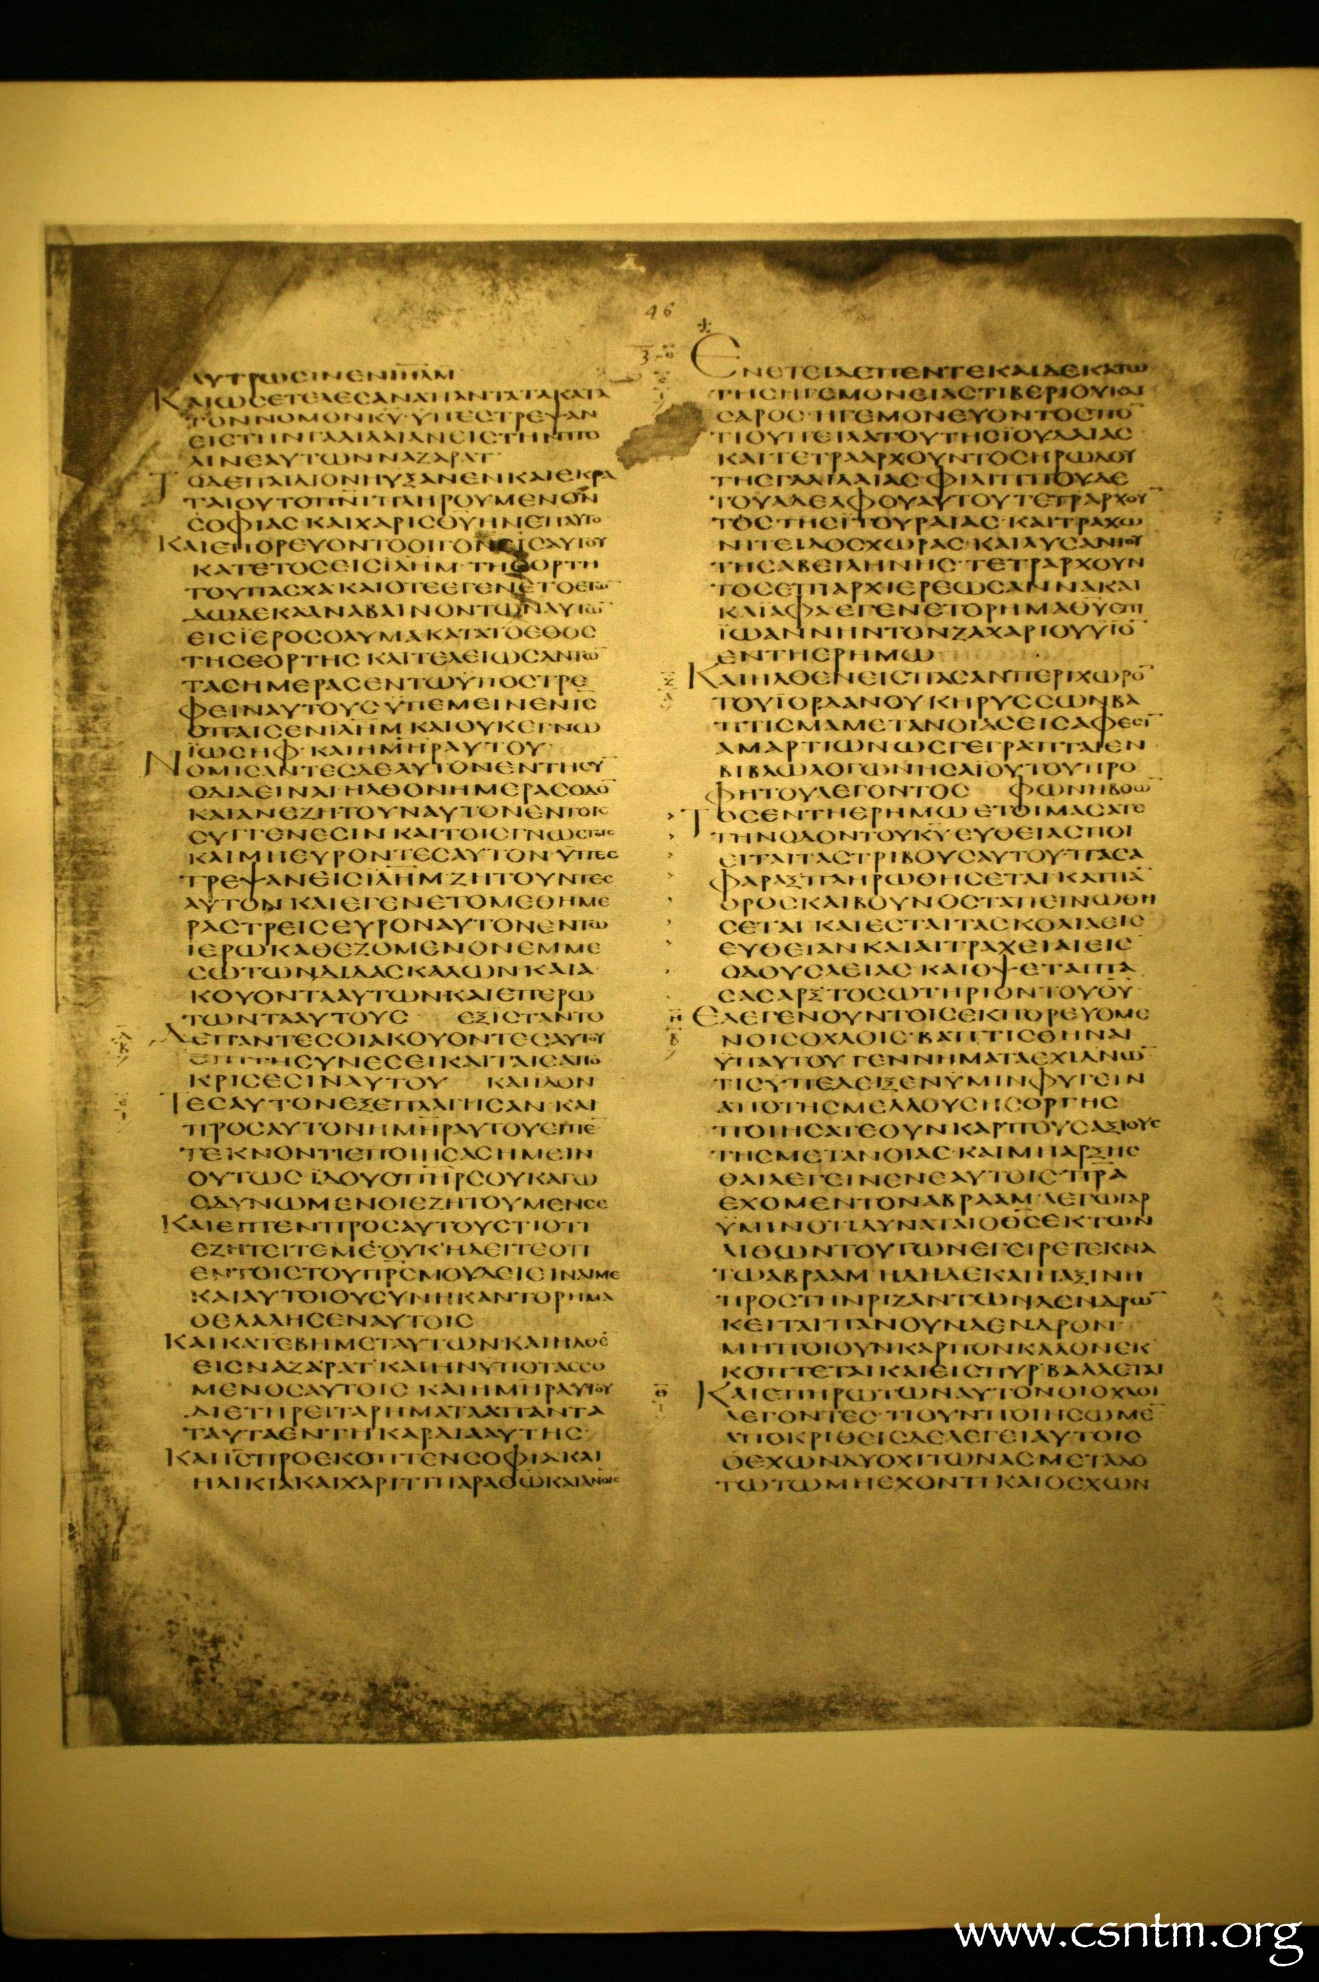 46
ΛΥΤΡΩϹΙΝΕΝΙΗΛΜ
ΚΑΙΩϹΕΤΕΛΕϹΑΝΑΠΑΝΤΑΤΑΚΑΤΑ
ΤΟΝΝΟΜΟΝΚΥ·ΥΠΕϹΤΡΕΨΑΝ
ΕΙϹΤΗΝΓΑΛΙΛΑΙΑΝΕΙϹΤΗΝΠΟ
ΛΙΝΕΑΥΤΩΝΝΑΖΑΡΑΤ·
ΤΟΔΕΠΑΙΔΙΟΝΗΥΞΑΝΕΝΚΑΙΕΚΡΑ
ΤΑΙΟΥΤΟΠΝΙΠΛΗΡΟΥΜΕΝΟΝ
ϹΟΦΙΑϹ·ΚΑΙΧΑΡΙϹΘΥΗΝΕΠΑΥΤΟ
ΚΑΙΕΠΟΡΕΥΟΝΤΟΟΙΓΟΝΕΙϹΑΥΤΟΥ
ΚΑΤΕΤΟϹΕΙϹΙΛΗΜ·ΤΗΕΟΡΤΗ
ΤΟΥΠΑϹΧΑ·ΚΑΙΟΤΕΕΓΕΝΕΤΟΕΤΩ
ΔΩΔΕΚΑΑΝΑΒΑΙΝΟΝΤΩΝΑΥΤΩ
ΕΙϹΪΕΡΟϹΟΛΥΜΑΚΑΤΑΤΟΕΘΟϹ
ΤΗϹΕΟΡΤΗϹ·ΚΑΙΤΕΛΕΙΩϹΑΝΤΩ
ΤΑϹΗΜΕΡΑϹΕΝΤΩΫΠΟϹΤΡΕ
ΦΕΙΝΑΥΤΟΥϹΫΠΕΜΕΙΝΕΝΙϹ
ΟΠΑΙϹΕΝΙΛΗΜ·ΚΑΙΟΥΚΕΓΝΩ
ΪΩϹΗΦ·ΚΑΙΗΜΗΡΑΥΤΟΥ·
ΝΟΜΙϹΑΝΤΕϹΔΕΑΥΤΟΝΕΝΤΗϹΥ
ΟΔΙΑΕΙΝΑΙ·ΗΛΘΟΝΗΜΕΡΑϹΟΔΟ
ΚΑΙΑΝΕΖΗΤΟΥΝΑΥΤΟΝΕΝΤΟΙϹ
ϹΥΓΓΕΝΕϹΙΝ·ΚΑΙΤΟΙϹΓΝΩϹΤΟΙϹ
ΚΑΙΜΗΕΥΡΟΝΤΕϹΑΥΤΟΝ·ΫΠΕϹ
ΤΡΕΨΑΝΕΙϹΙΛΗΜ·ΖΗΤΟΥΝΤΕϹ
ΑΥΤΟΝ·ΚΑΙΕΓΕΝΕΤΟΜΕΘΗΜΕ
ΡΑϹΤΡΕΙϹΕΥΡΟΝΑΥΤΟΝΕΝΤΩ
ΪΕΡΩΚΑΘΕΖΟΜΕΝΟΝΕΜΜΕ
ϹΩΤΩΝΔΙΔΑϹΚΑΛΩΝΚΑΙΑ
ΚΟΥΟΝΤΑΑΥΤΩΝΚΑΙΕΠΕΡΩ
ΤΩΝΤΑΑΥΤΟΥϹ· ΕΞΙϹΤΑΝΤΟ
ΔΕΠΑΝΤΕϹΟΙΑΚΟΥΟΝΤΕϹΑΥΤΟΥ
ΕΠΙΤΗϹΥΝΕϹΕΙΚΑΙΤΑΙϹΑΠΟ
ΚΡΙϹΕϹΙΝΑΥΤΟΥ· ΚΑΙΙΔΟΝ
ΤΕϹΑΥΤΟΝΕΞΕΠΛΑΓΗϹΑΝ·ΚΑΙ
ΠΡΟϹΑΥΤΟΝΗΜΗΡΑΥΤΟΥΕΙΠΕ
ΤΕΚΝΟΝΤΙΕΠΟΙΗϹΑϹΗΜΕΙΝ
ΟΥΤΩϹ·ΪΔΟΥΟΠΗΡϹΟΥΚΑΓΩ
ΟΔΥΝΩΜΕΝΟΙΕΖΗΤΟΥΜΕΝϹΕ
ΚΑΙΕΙΠΕΝΠΡΟϹΑΥΤΟΥϹΤΙΟΤΙ
ΕΖΗΤΕΙΤΕΜΕΟΥΚΗΔΕΙΤΕΟΤΙ
ΕΝΤΟΙϹΤΟΥΠΡϹΜΟΥΔΕΙϹΕΙΝΑΙΜΕ
ΚΑΙΑΥΤΟΙΟΥϹΥΝΗΚΑΝΤΟΡΗΜΑ
ΟΕΛΑΛΗϹΕΝΑΥΤΟΙϹ
ΚΑΙΚΑΤΕΒΗΜΕΤΑΥΤΩΝΚΑΙΗΛΘΕ
ΕΙϹΝΑΖΑΡΑΤ·ΚΑΙΗΝΥΠΟΤΑϹϹΟ
ΜΕΝΟϹΑΥΤΟΙϹ·ΚΑΙΗΜΗΡΑΥΤΟΥ
ΔΙΕΤΗΡΕΙΤΑΡΗΜΑΤΑΑΠΑΝΤΑ
ΤΑΥΤΑΕΝΤΗΚΑΡΔΙΑΑΥΤΗϹ·
ΚΑΙΙϹΠΡΟΕΚΟΠΤΕΝϹΟΦΙΑΚΑΙ
ΗΛΙΚΙΑΚΑΙΧΑΡΙΤΙΠΑΡΑΘΩΚΑΙΑΝΟΙϹ
ΕΝΕΤΕΙΔΕΠΕΝΤΕΚΑΙΔΕΚΑΤΩ
ΤΗϹΗΓΕΜΟΝΕΙΑϹΤΙΒΕΡΙΟΥΚΑΙ
ϹΑΡΟϹ·ΗΓΕΜΟΝΕΥΟΝΤΟϹΠΟ
ΤΙΟΥΠΕΙΛΑΤΟΥΤΗϹΪΟΥΔΑΙΑϹ
ΚΑΙΤΕΤΡΑΑΡΧΟΥΝΤΟϹΗΡΩΔΟΥ
ΤΗϹΓΑΛΙΛΑΙΑϹ·ΦΙΛΙΠΠΟΥΔΕ
ΤΟΥΑΔΕΛΦΟΥΑΥΤΟΥΤΕΤΡΑΡΧΟΥ
ΤΟϹΤΗϹΙΤΟΥΡΑΙΑϹ·ΚΑΙΤΡΑΧΩ
ΝΙΤΕΙΔΟϹΧΩΡΑϹ·ΚΑΙΛΥϹΑΝΙΟΥ
ΤΗϹΑΒΕΙΛΗΝΗϹ·ΤΕΤΡΑΡΧΟΥΝ
ΤΟϹΕΠΙΑΡΧΙΕΡΕΩϹΑΝΝΑΚΑΙ
ΚΑΪΑΦΑΕΓΕΝΕΤΟΡΗΜΑΘΥΕΠΙ
ΪΩΑΝΝΗΝΤΟΝΖΑΧΑΡΙΟΥΥΙΟ
ΕΝΤΗΕΡΗΜΩ·
ΚΑΙΗΛΘΕΝΕΙϹΠΑϹΑΝΠΕΡΙΧΩΡΟ
ΤΟΥΪΟΡΔΑΝΟΥΚΗΡΥϹϹΩΝΒΑ
ΠΤΙϹΜΑΜΕΤΑΝΟΙΑϹΕΙϹΑΦΕϹΙ
ΑΜΑΡΤΙΩΝΩϹΓΕΓΡΑΠΤΑΙΕΝ
ΒΙΒΛΩΛΟΓΩΝΗϹΑΪΟΥΤΟΥΠΡΟ
ΦΗΤΟΥΛΕΓΟΝΤΟϹ· ΦΩΝΗΒΟΩ
ΤΟϹΕΝΤΗΕΡΗΜΩΕΤΟΙΜΑϹΑΤΕ
ΤΗΝΟΔΟΝΤΟΥΚΥ·ΕΥΘΕΙΑϹΠΟΙ
ΕΙΤΑΙΤΑϹΤΡΙΒΟΥϹΑΥΤΟΥ·ΠΑϹΑ
ΦΑΡΑΞΠΛΗΡΩΘΗϹΕΤΑΙ·ΚΑΙΠΑ
ΟΡΟϹΚΑΙΒΟΥΝΟϹΤΑΠΕΙΝΩΘΗ
ϹΕΤΑΙ·ΚΑΙΕϹΤΑΙΤΑϹΚΟΛΙΑΕΙϹ
ΕΥΘΕΙΑΝΚΑΙΑΙΤΡΑΧΕΙΑΙΕΙϹ
ΟΔΟΥϹΛΕΙΑϹ·ΚΑΙΟΨΕΤΑΙΠΑ
ϹΑϹΑΡΞΤΟϹΩΤΗΡΙΟΝΤΟΥΘΥ·
ΕΛΕΓΕΝΟΥΝΤΟΙϹΕΚΠΟΡΕΥΟΜΕ
ΝΟΙϹΟΧΛΟΙϹ·ΒΑΠΤΙϹΘΗΝΑΙ
ΫΠΑΥΤΟΥ·ΓΕΝΝΗΜΑΤΑΕΧΙΔΝΩ
ΤΙϹΥΠΕΔΕΙΞΕΝΥΜΙΝΦΥΓΕΙΝ
ΑΠΟΤΗϹΜΕΛΛΟΥϹΗϹΟΡΓΗϹ
ΠΟΙΗϹΑΤΕΟΥΝΚΑΡΠΟΥϹΑΞΙΟΥϹ
ΤΗϹΜΕΤΑΝΟΙΑϹ·ΚΑΙΜΗΑΡΞΗϹ
ΘΑΙΛΕΓΕΙΝΕΝΕΑΥΤΟΙϹ·ΠΡΑ
ΕΧΟΜΕΝΤΟΝΑΒΡΑΑΜ·ΛΕΓΩΓΑΡ
ΫΜΙΝΟΤΙΔΥΝΑΤΑΙΟΘϹΕΚΤΩΝ
ΛΙΘΩΝΤΟΥΤΩΝΕΓΕΙΡΕΤΕΚΝΑ
ΤΩΑΒΡΑΑΜ·ΗΔΗΔΕΚΑΙΗΑΞΙΝΗ
ΠΡΟϹΤΗΝΡΙΖΑΝΤΩΝΔΕΝΔΡΩ
ΚΕΙΤΑΙ·ΠΑΝΟΥΝΔΕΝΔΡΟΝ
ΜΗΠΟΙΟΥΝΚΑΡΠΟΝΚΑΛΟΝΕΚ
ΚΟΠΤΕΤΑΙΚΑΙΕΙϹΠΥΡΒΑΛΛΕΤΑΙ
ΚΑΙΕΠΗΡΩΤΩΝΑΥΤΟΝΟΙΟΧΛΟΙ
ΛΕΓΟΝΤΕϹ·ΤΙΟΥΝΠΟΙΗϹΩΜΕ
ΑΠΟΚΡΙΘΕΙϹΔΕΛΕΓΕΙΑΥΤΟΙϹ
ΟΕΧΩΝΔΥΟΧΙΤΩΝΑϹΜΕΤΑΔΟ
ΤΩΤΩΜΗΕΧΟΝΤΙ·ΚΑΙΟΕΧΩΝ
www.csntm.org